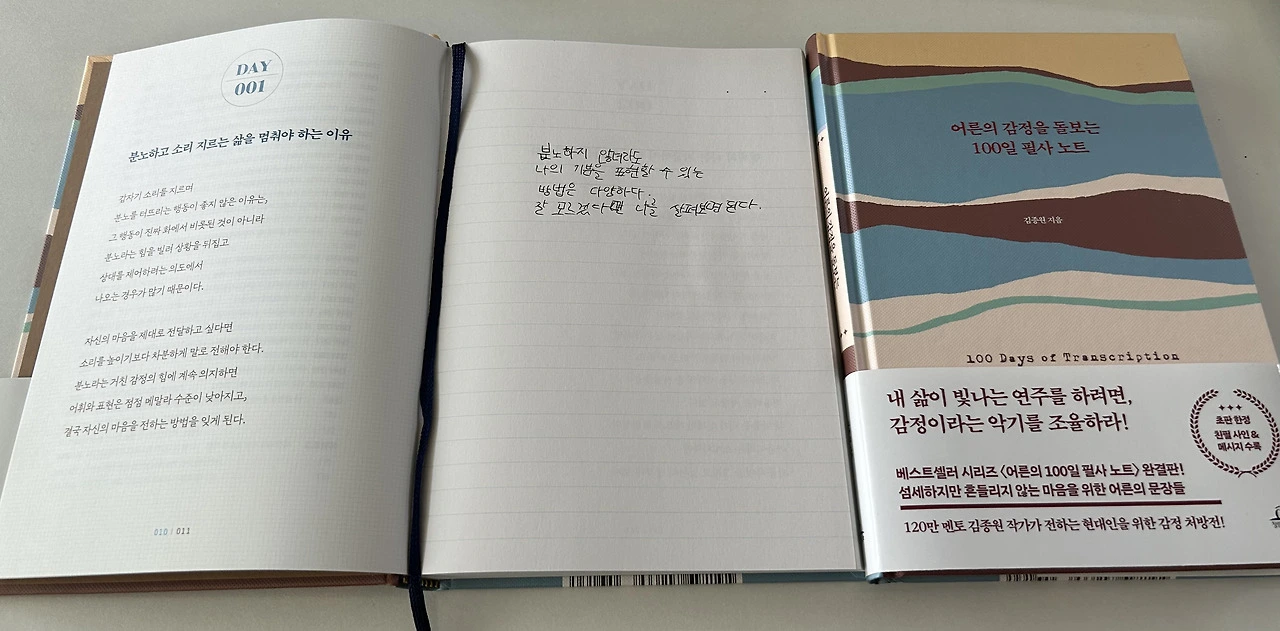 DAY
001
분노하고 소리 지르는 삶을 멈춰야 하는 이유
갑자기 소리를 지르며
분노를 터뜨리는 행동이 좋지 않은 이유는,
그 행동이 진짜 화에서 비롯된 것이 아니라
분노라는 힘을 빌려 상황을 뒤집고
상대를 제어하려는 의도에서
나오는 경우가 많기 때문이다.
자신의 마음을 제대로 전달하고 싶다면
소리를 높이기보다 차분하게 말로 전해야 한다.
분노라는 거친 감정의 힘에 계속 의지하면
어휘와 표현은 점점 메말라 수준이 낮아지고,
결국 자신의 마음을 전하는 방법을 잊게 된다.
010 | 011
분노하지 않더라도
나의 기분을 표현할 수 있는
방법은 다양하다.
잘 모르겠다면 나를 살펴보면 된다.
어른의 감정을 돌보는
100일 필사 노트
김종원 지음
100 Days of Transcription
내 삶이 빛나는 연주를 하려면,
감정이라는 악기를 조율하라!
초판 한정
친필 사인 &
메시지 수록
베스트셀러 시리즈 〈어른의 100일 필사 노트〉 완결판!
섬세하지만 흔들리지 않는 마음을 위한 어른의 문장들
120만 멘토 김종원 작가가 전하는 현대인을 위한 감정 처방전!